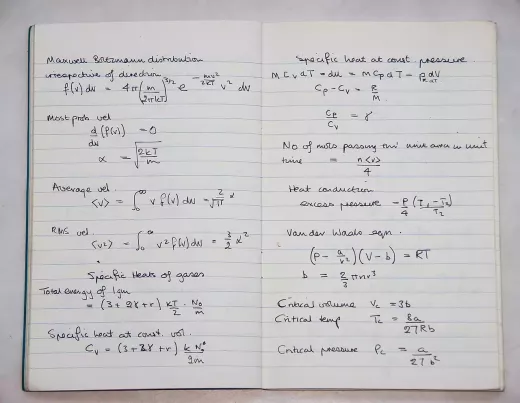 Maxwell Boltzmann distribution
irrespective of direction
f(v) dv = 4π (m/2πkT)^3/2 e^-mv²/2kT v² dv
Most prob vel
d/dv (f(v)) = 0
α = √(2kT/m)
Average vel
<v> = ∫₀^∞ v f(v) dv = 2/√π α
RMS vel
<v²> = ∫₀^∞ v² f(v) dv = 3/2 α²
Specific Heats of gases
Total energy of 1gm
= (3 + 2γ + r) kT/2 · N₀/m
Specific heat at const. vol.
Cv = (3 + 2γ + r) k N₀/2m
Specific heat at const. pressure.
m Cv dT = du = m Cp dT - p dV
Cp - Cv = R/M
Cp/Cv = γ
No of mols passing thro' unit area in unit
time = n<v>/4
Heat conduction
excess pressure - P/4 (T₁ - T₂)/T₂
Van der Waals eqn.
(P - a/v²)(V - b) = RT
b = 2/3 πnr³
Critical volume Vc = 3b
Critical temp Tc = 8a/27Rb
Critical pressure Pc = a/27b²